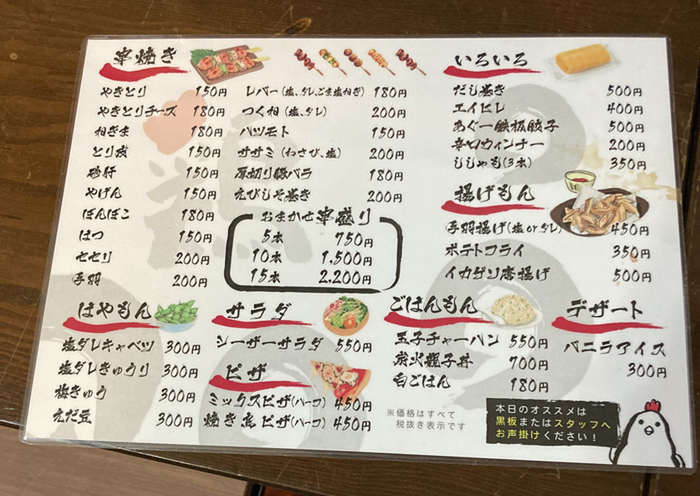 串焼き
やきとり 150円
やきとりチーズ 180円
ねぎま 180円
とり皮 150円
砂肝 150円
やげん 150円
ぼんぼこ 180円
はつ 150円
セセリ 200円
手羽 200円
レバー(塩、タレ、ごま塩ねぎ) 180円
つくね(塩、タレ) 200円
ハツモト 150円
ササミ(わさび、塩) 200円
厚切り豚バラ 180円
えびしそ巻き 200円
おまかせ串盛り
5本 750円
10本 1,500円
15本 2,200円
いろいろ
だし巻き 500円
エイヒレ 400円
あぐー鉄板餃子 500円
辛口ウィンナー 200円
ししゃも(3本) 350円
揚げもん
手羽揚げ(塩orタレ) 450円
ポテトフライ 350円
イカゲソ唐揚げ 500円
はやもん
塩ダレキャベツ 300円
塩ダレきゅうり 300円
梅きゅう 300円
えだ豆 300円
サラダ
シーザーサラダ 550円
ピザ
ミックスピザ(ハーフ) 450円
焼き鳥ピザ(ハーフ) 450円
ごはんもん
玉子チャーハン 550円
炭火親子丼 700円
白ごはん 180円
※価格はすべて
税抜き表示です
デザート
バニラアイス
300円
本日のオススメは
黒板またはスタッフへ
お声掛けください!